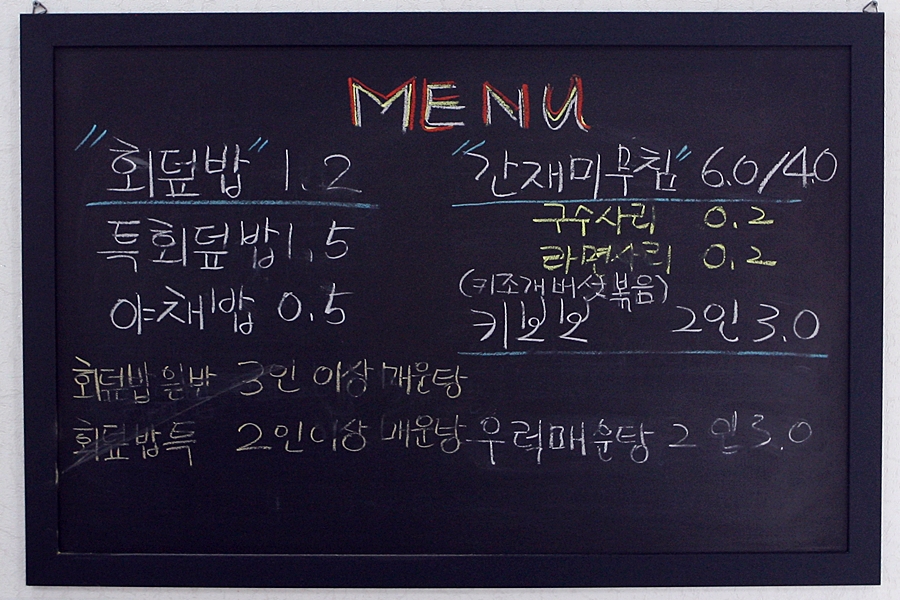 MENU
"회덮밥" 1.2
특회덮밥 1.5
야채밥 0.5
회덮밥 일반 3인 이상 매운탕
회덮밥특 2인이상 매운탕
"간재미무침" 6.0/4.0
구수사리 0.2
라면사리 0.2
(키조개버섯볶음)
키보보 2인 3.0
우럭매운탕 2인 3.0